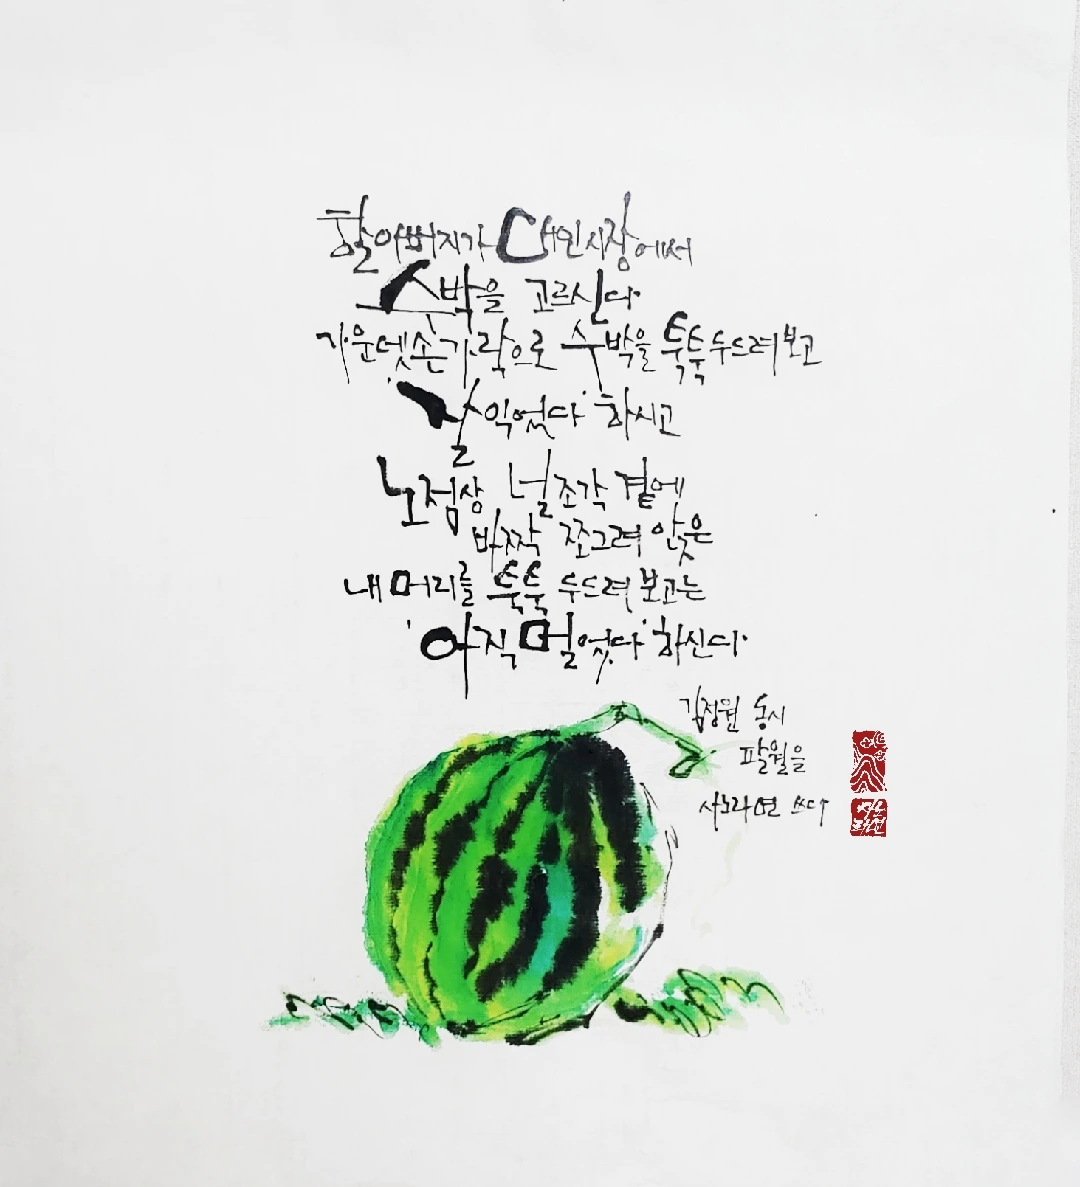 할아버지가 대인시장에서
수박을 고르신다
가운뎃손가락으로 수박을 툭툭 두드려보고
'잘 익었다' 하시고
노점상 널조각 곁에
바짝 쪼그려 앉은
내 머리를 툭툭 두드려 보고는
'아직 멀었다' 하신다
김정원 동시
팔월을
사노라면 쓰다